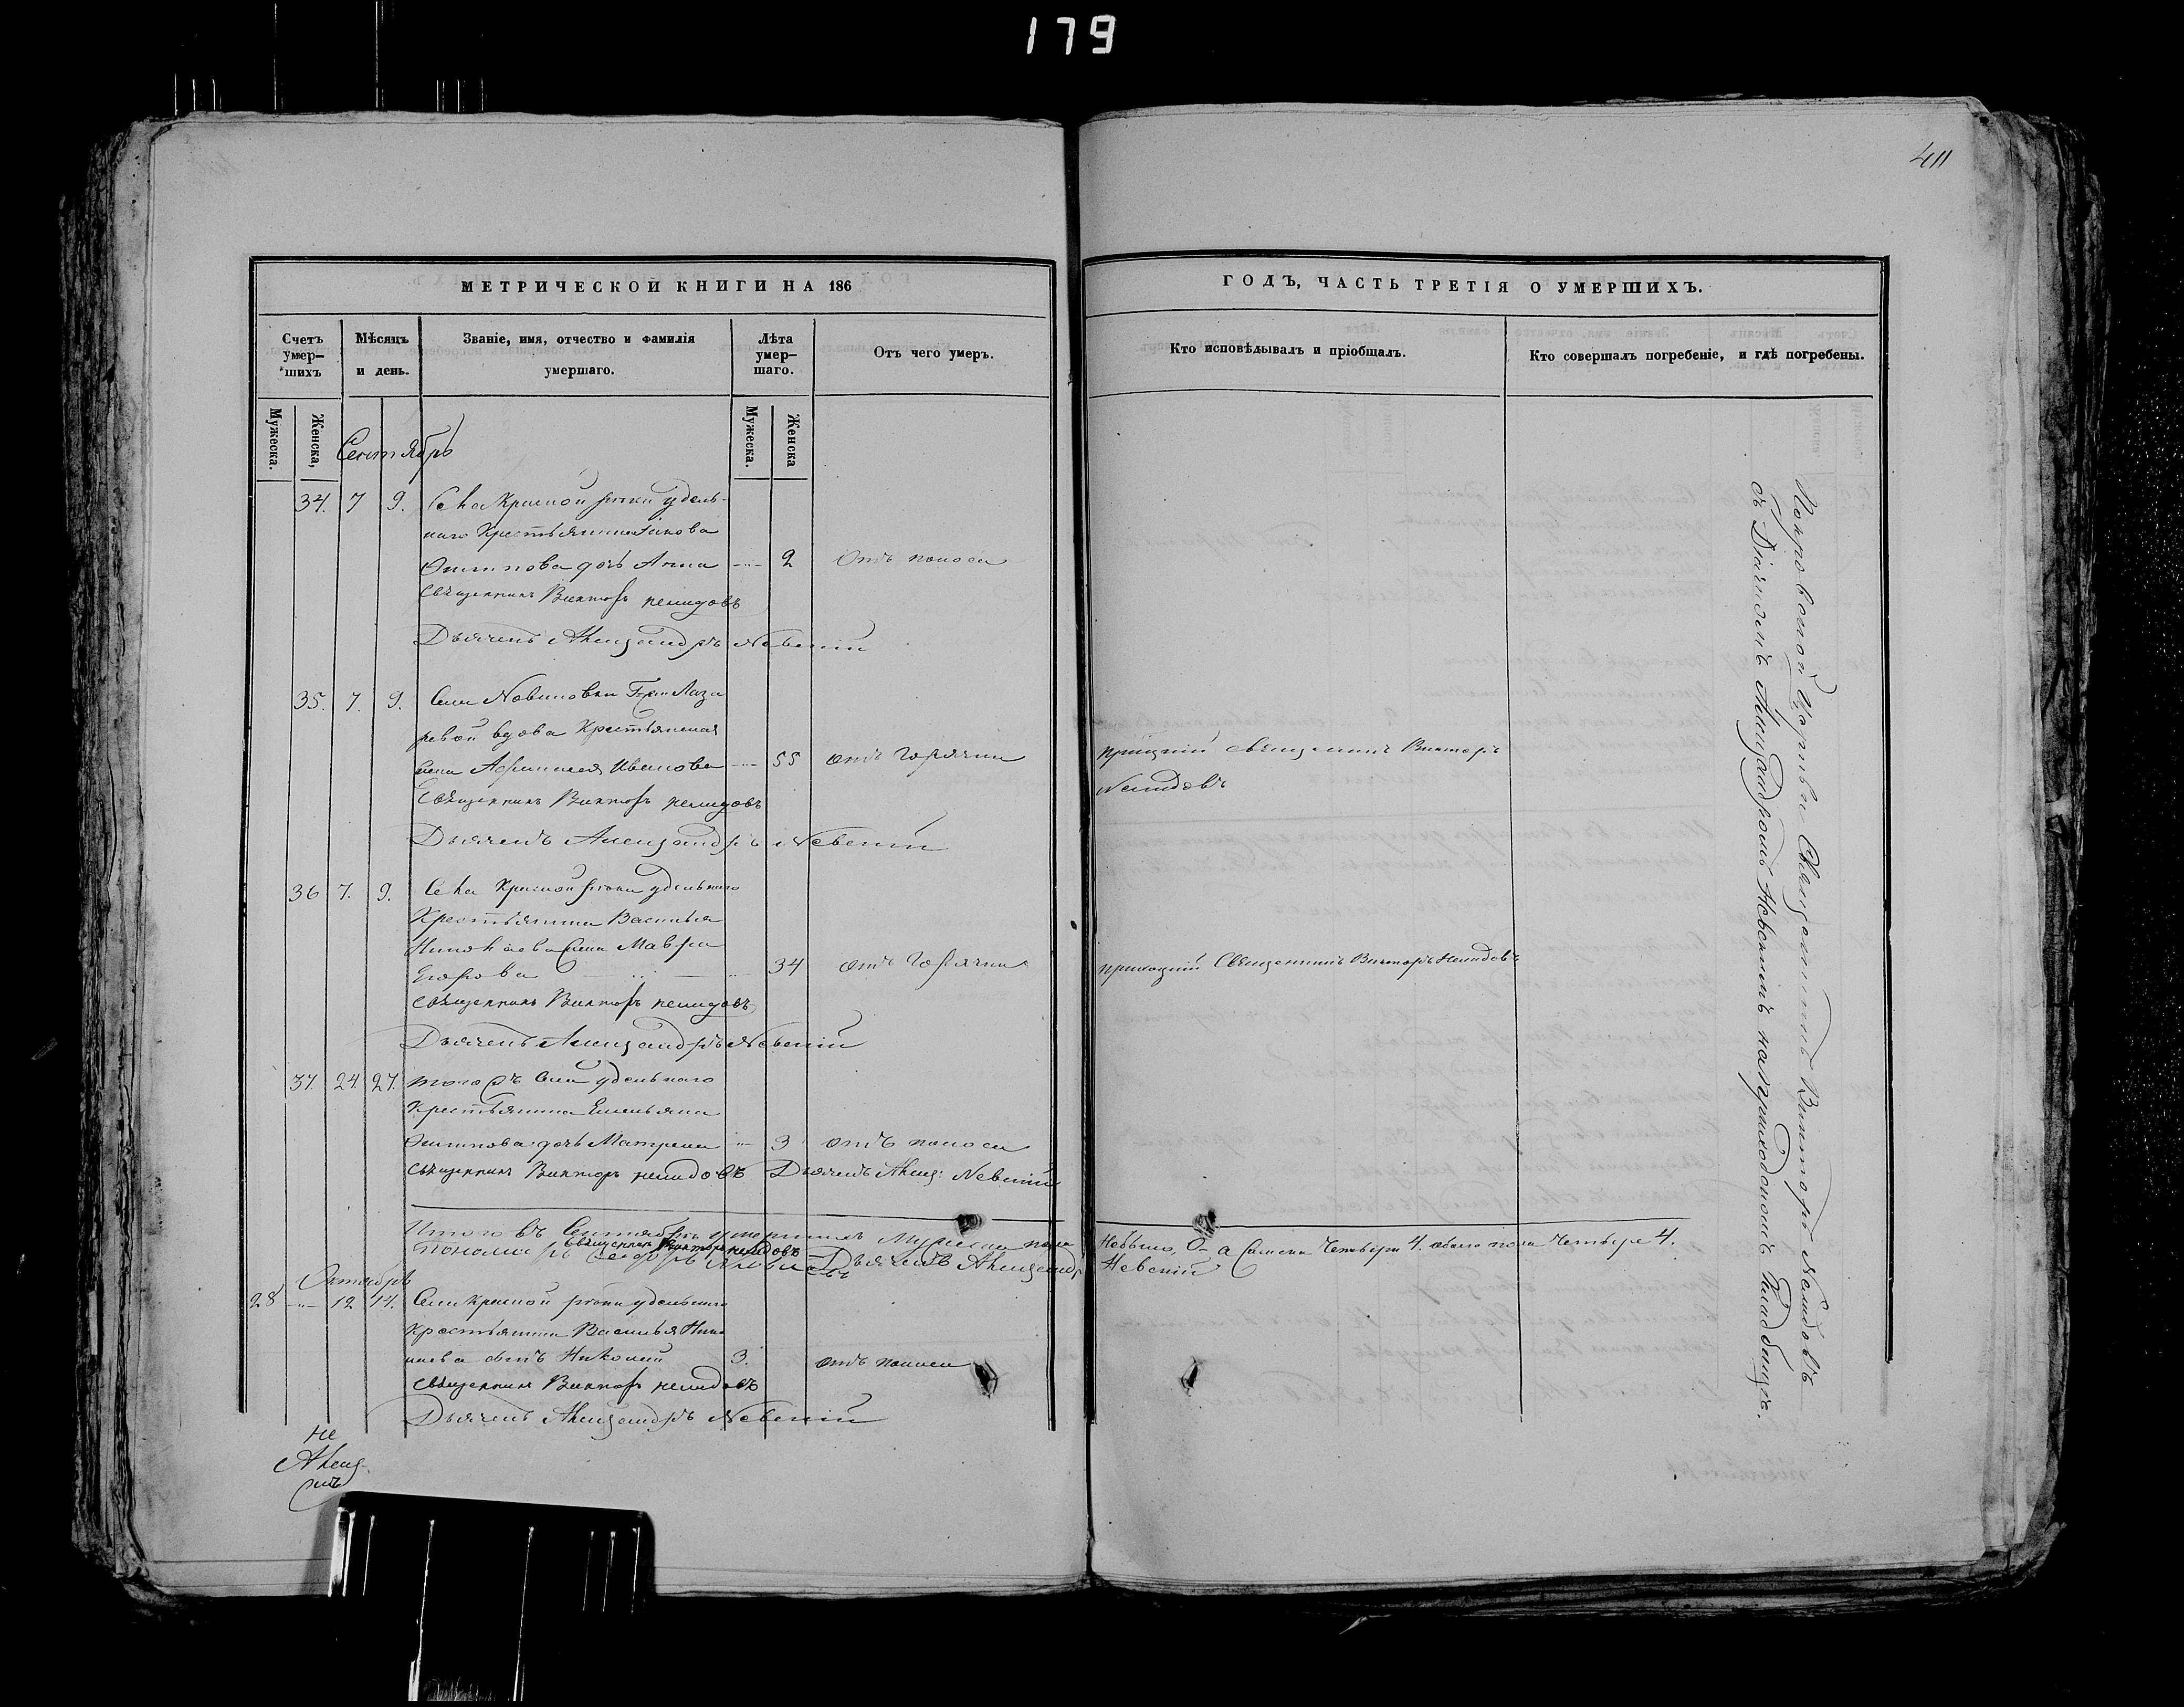 179
411
МЕТРИЧЕСКОЙ КНИГИ НА 186
Счетъ умер-шихъ
Мѣсяцъ и день.
Званіе, имя, отчество и фамилія умершаго.
Лѣта умер-шаго.
Отъ чего умеръ.
Мужеска.
Женска,
Мужеска.
Женска
Сентябрь
34. 7 9. Села Красной рѣчки удѣль-
наго Крестьянина
Осипова дочь Анна 2 Отъ поноса
Священникъ Викторъ Немидовъ
Дьячекъ Александръ Невскій
35. 7. 9. Села Новиковки
вдова Крестьянская
Ивановa 55 отъ горячки
Священникъ Викторъ Немидовъ
Дьячекъ Александръ Невскій
36 7. 9. Села Красной рѣчки удѣльнаго
Крестьянина Василья
Николаева жена Мавра
Егорова 34 отъ горячки
Священникъ Викторъ Немидовъ
Дьячекъ Александръ Невскій
37. 24. 27. тогожъ села удѣльнаго
Крестьянина Емельяна
Осипова дочь Матрена 3 отъ поноса
Священникъ Викторъ Немидовъ Дьячекъ Алекс: Невскій
Итого въ Сентябрѣ умершихъ Мужеска пола
Священникъ Викторъ Немидовъ
Пономарь Дьячекъ Александръ
Октябрь
28 12 14. Села Красной рѣчки удѣльнаго
Крестьянина Василья Нико
лаева сынъ Николай 3. отъ поноса
Священникъ Викторъ Немидовъ
Дьячекъ Александръ Невскій
не
ГОДЪ, ЧАСТЬ ТРЕТІЯ О УМЕРШИХЪ.
Кто исповѣдывалъ и пріобщалъ.
Кто совершалъ погребеніе, и гдѣ погребены.
приходскій священникъ Викторъ
Немидовъ
приходскій Священникъ Викторъ Немидовъ
Небыло, 0 а Женска Четверы 4. обоего пола Четыре 4.
Невскій
Покровской Церкви Священникъ Викторъ Немидовъ
съ Дьячкомъ Александромъ Невскимъ на приходскомъ кладбищѣ.